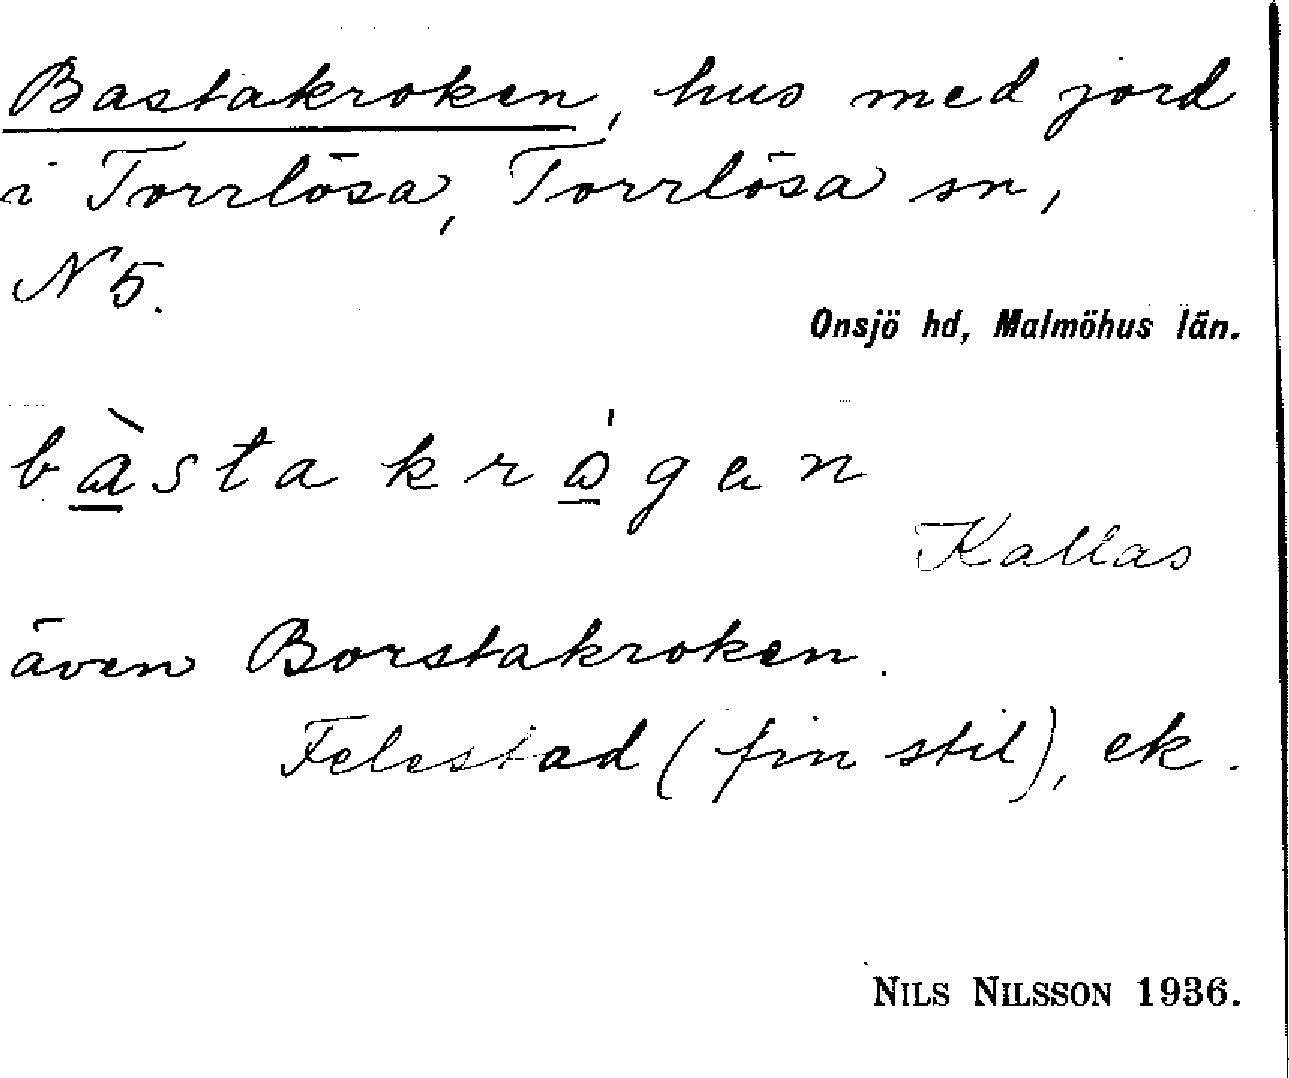 Bastakroken, hus med jord
i Torrlösa, Torrlösa sn,
N 5.
Onsjö hd, Malmöhus län.
bàstakrógen
Kallas
även Borstakroken.
Felestad (fin stil), ek.
NILS NILSSON 1936.